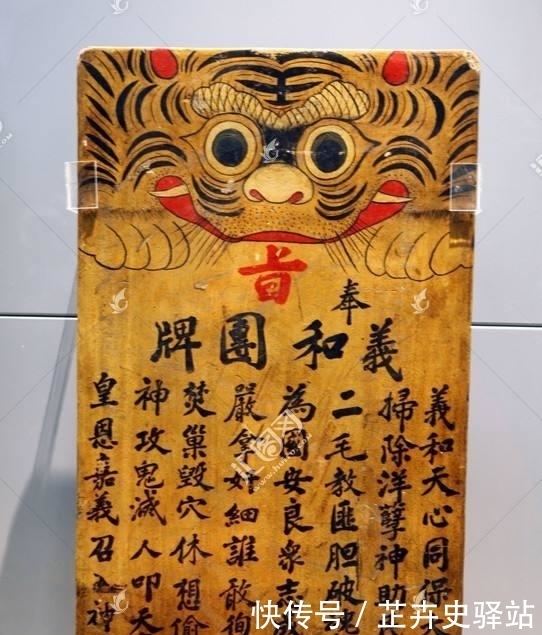 奉
旨
義和團牌
義和天心同保
掃除洋孽神助
二毛教匪胆破
為國安良眾志
嚴拿奸細誰敢徇
焚巢毀穴休想偷
神攻鬼滅人叩天
皇恩嘉義召神
快传号 / 芷卉史驿站